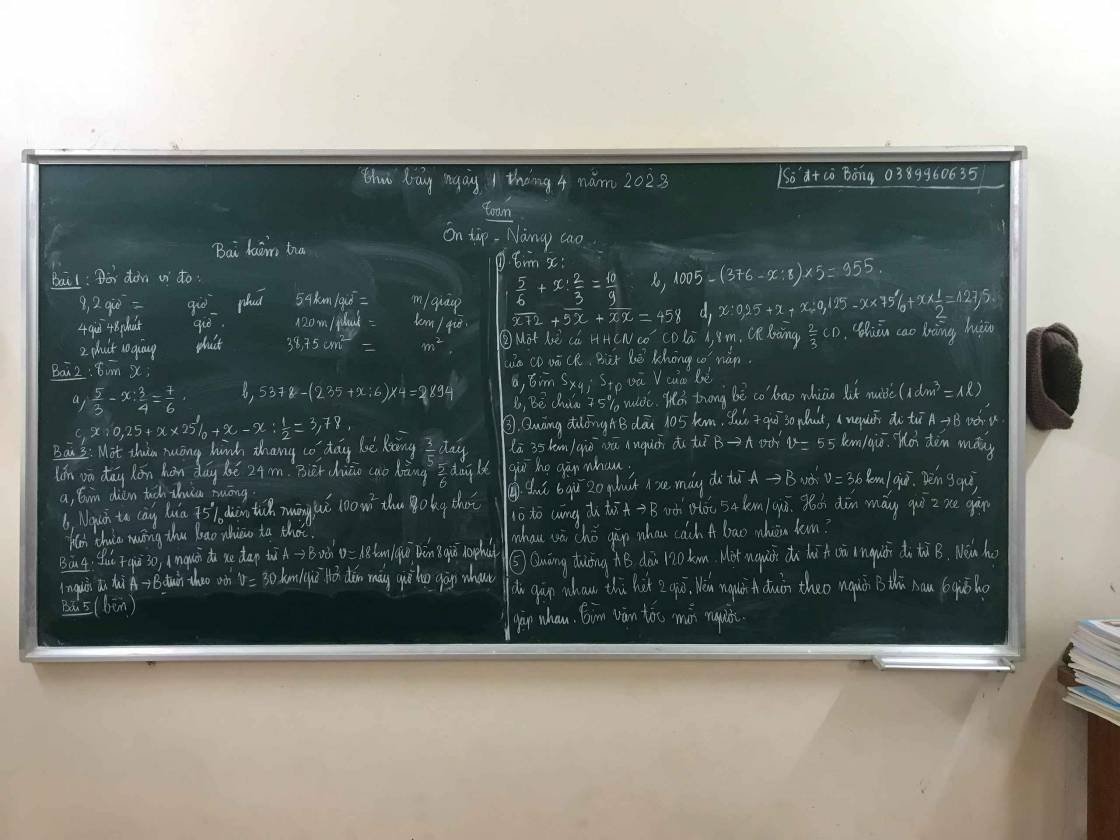 Thứ bảy ngày 1 tháng 4 năm 2023
Số đt cô Bống 0389960635
Toán
Ôn tập - Nâng cao.
Bài kiểm tra
Bài 1: Đổi đơn vị đo:
8,2 giờ = giờ phút 54km/giờ = m/giây
4 giờ 48 phút giờ. 120m/phút = km/giờ.
2 phút 10 giây phút 38,75 cm² = m².
Bài 2: Tìm x:
a, 5/3 - x : 3/4 = 7/6. b, 5378 - (235 + x : 6) × 4 = 2894
c, x : 0,25 + x × 25% + x - x : 1/2 = 3,78.
Bài 3: Một thửa ruộng hình thang có đáy bé bằng 3/5 đáy
lớn và đáy lớn hơn đáy bé 24 m. Biết chiều cao bằng 5/6 đáy bé
a, Tìm diện tích thửa ruộng.
b, Người ta cấy lúa 75% diện tích ruộng, cứ 100m² thu 80kg thóc
Hỏi thửa ruộng thu bao nhiêu tạ thóc.
Bài 4: Lúc 7 giờ 30, 1 người đi xe đạp từ A → B với v = 18km/giờ Đến 8 giờ 10 phút
1 người đi từ A → B đuổi theo với v = 30 km/giờ Hỏi đến mấy giờ họ gặp nhau
Bài 5 (bên)
① Tìm x:
5/6 + x : 2/3 = 10/9 b, 1005 - (376 - x : 8) × 5 = 955.
x72 + 5x + xx = 458 d, x : 0,25 + x + x : 0,125 - x × 75% + x × 1/2 = 127,5.
② Một bể cá HHCN có CD là 1,8m. CR bằng 2/3 CD. Chiều cao bằng hiệu
của CD và CR. Biết bể không có nắp.
a, Tìm Sxq; Stp và V của bể
b, Bể chứa 75% nước. Hỏi trong bể có bao nhiêu lít nước (1dm³ = 1l)
③ Quãng đường AB dài 105 km. Lúc 7 giờ 30 phút, 1 người đi từ A → B với v
là 35 km/giờ và 1 người đi từ B → A với v = 55 km/giờ. Hỏi đến mấy
giờ họ gặp nhau.
④ Lúc 6 giờ 20 phút 1 xe máy đi từ A → B với v = 36 km/giờ. Đến 9 giờ,
1 ô tô cũng đi từ A → B với vtốc 54 km/giờ. Hỏi đến mấy giờ 2 xe gặp
nhau và chỗ gặp nhau cách A bao nhiêu km?
⑤ Quãng đường AB dài 120 km. Một người đi từ A và 1 người đi từ B. Nếu họ
đi gặp nhau thì hết 2 giờ. Nếu người A đuổi theo người B thì sau 6 giờ họ
gặp nhau. Tìm vận tốc mỗi người.